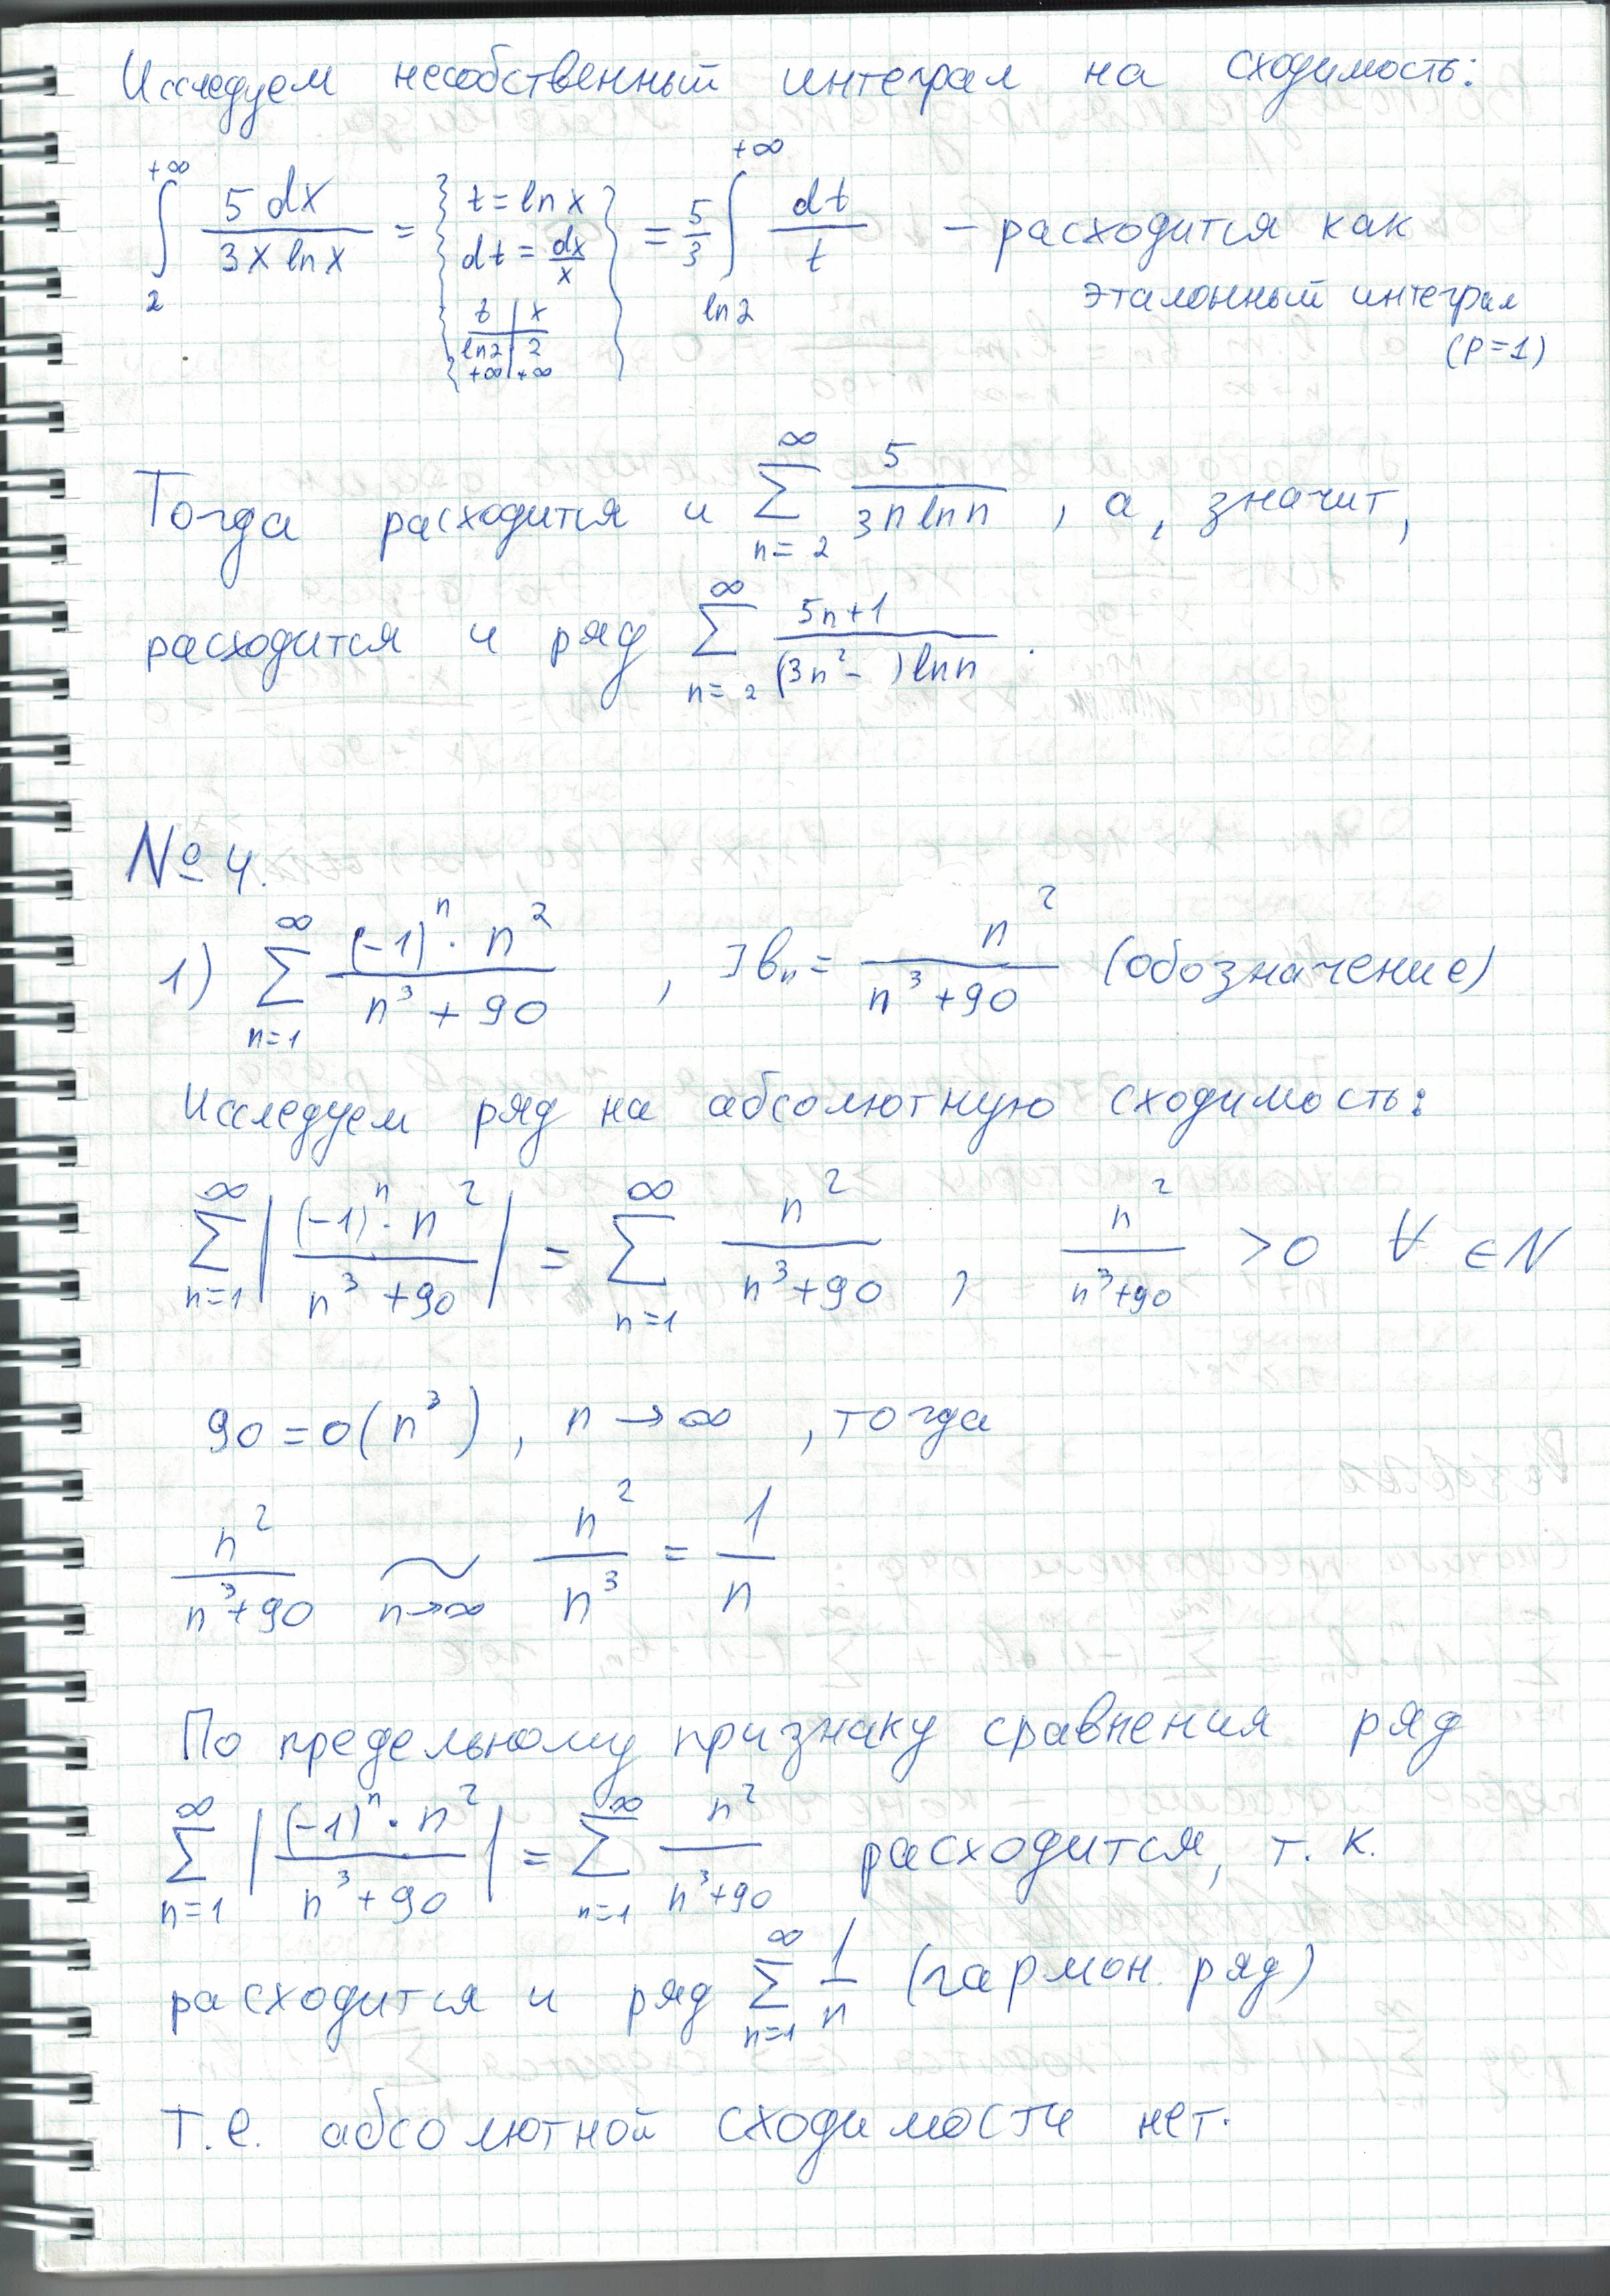 Исследуем несобственный интеграл на сходимость:
∫₂^{+∞} 5dx/(3x ln x) = { t = ln x, dt = dx/x, t | x, ln2 | 2, +∞ | +∞ } = 5/3 ∫_{ln2}^{+∞} dt/t – расходится как
эталонный интеграл
(p=1)
Тогда расходится и ∑_{n=2}^{∞} 5/(3n ln n), а, значит,
расходится и ряд ∑_{n=2}^{∞} (5n+1)/((3n² - ) ln n).
№ 4.
1) ∑_{n=1}^{∞} ((-1)ⁿ · n²)/(n³+90) , ] bₙ = n²/(n³+90) (обозначение)
Исследуем ряд на абсолютную сходимость:
∑_{n=1}^{∞} |((-1)ⁿ · n²)/(n³+90)| = ∑_{n=1}^{∞} n²/(n³+90) , n²/(n³+90) >0 ∀ ∈N
90 = o(n³), n→∞, тогда
n²/(n³+90) ~_{n→∞} n²/n³ = 1/n
По предельному признаку сравнения ряд
∑_{n=1}^{∞} |((-1)ⁿ · n²)/(n³+90)| = ∑_{n=1}^{∞} n²/(n³+90) расходится, т. к.
расходится и ряд ∑_{n=1}^{∞} 1/n (гармон. ряд)
т.е. абсолютной сходимости нет.